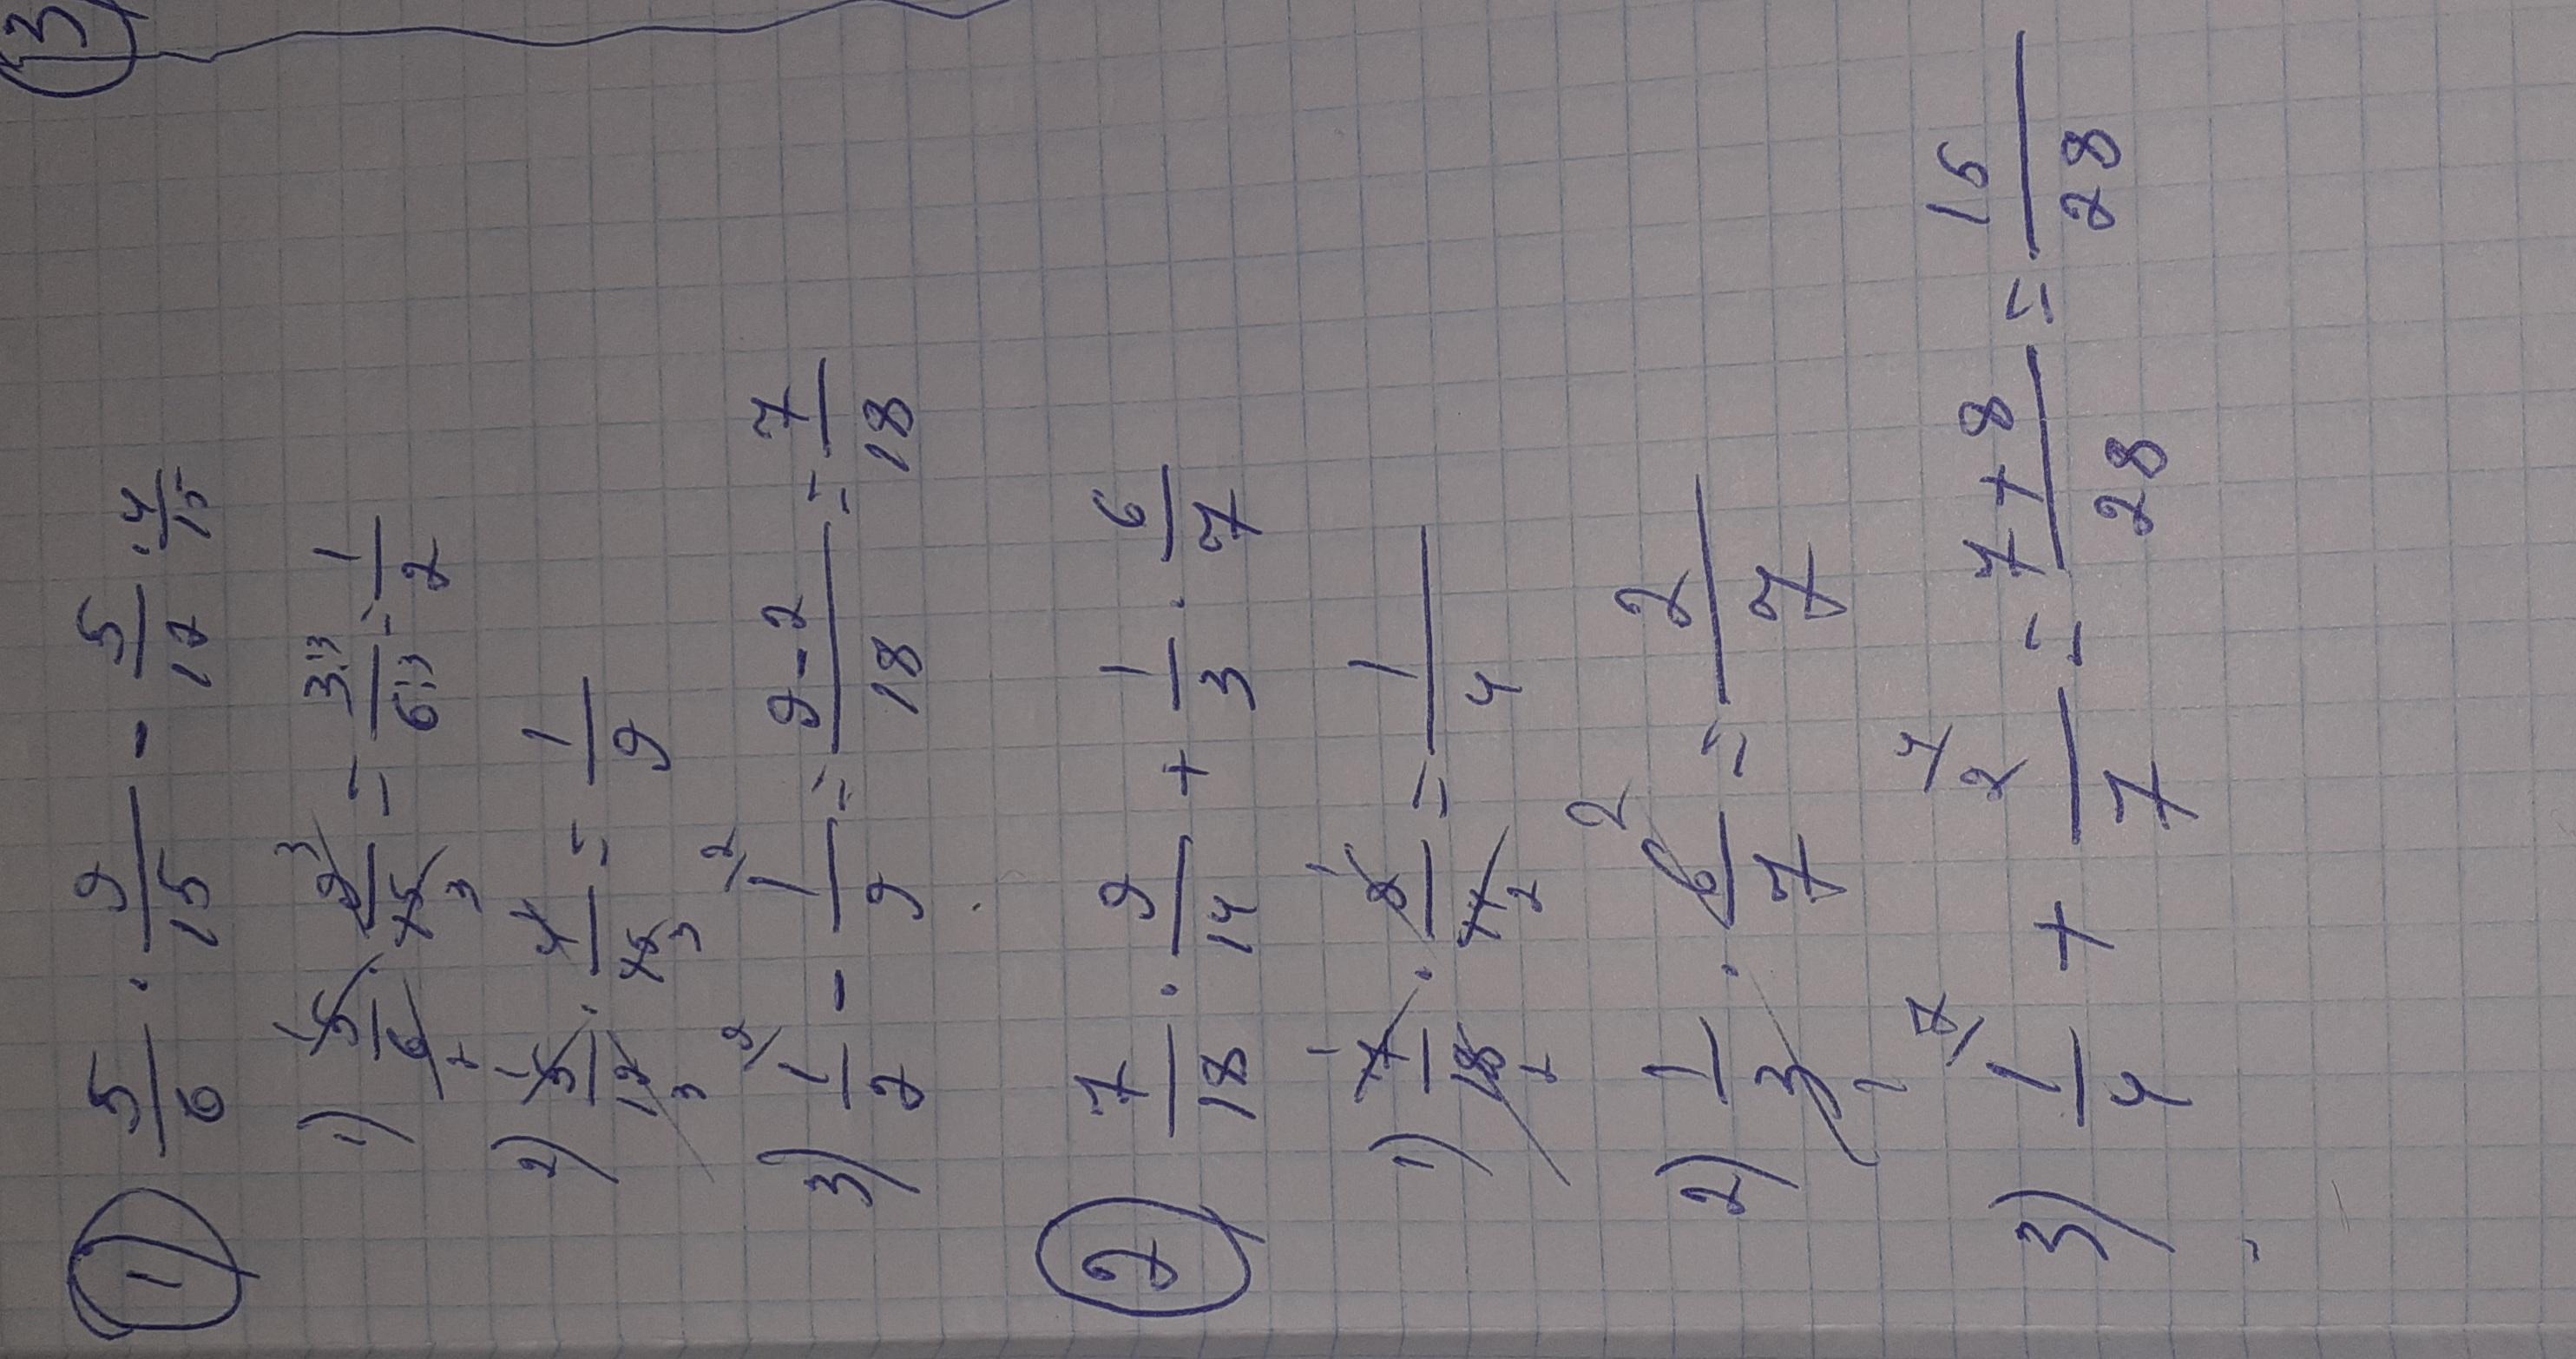 ① 5/6 · 9/15 - 5/12 · 4/15
1) 5/6 · 9/15 = 3:3/6:3 = 1/2
2) 5/12 · 4/15 = 1/9
3) 1/2 - 1/9 = 9-2/18 = 7/18
② 7/18 · 9/14 + 1/3 · 6/7
1) 7/18 · 9/14 = 1/4
2) 1/3 · 6/7 = 2/7
3) 1/4 + 2/7 = 7+8/28 = 15/28
③